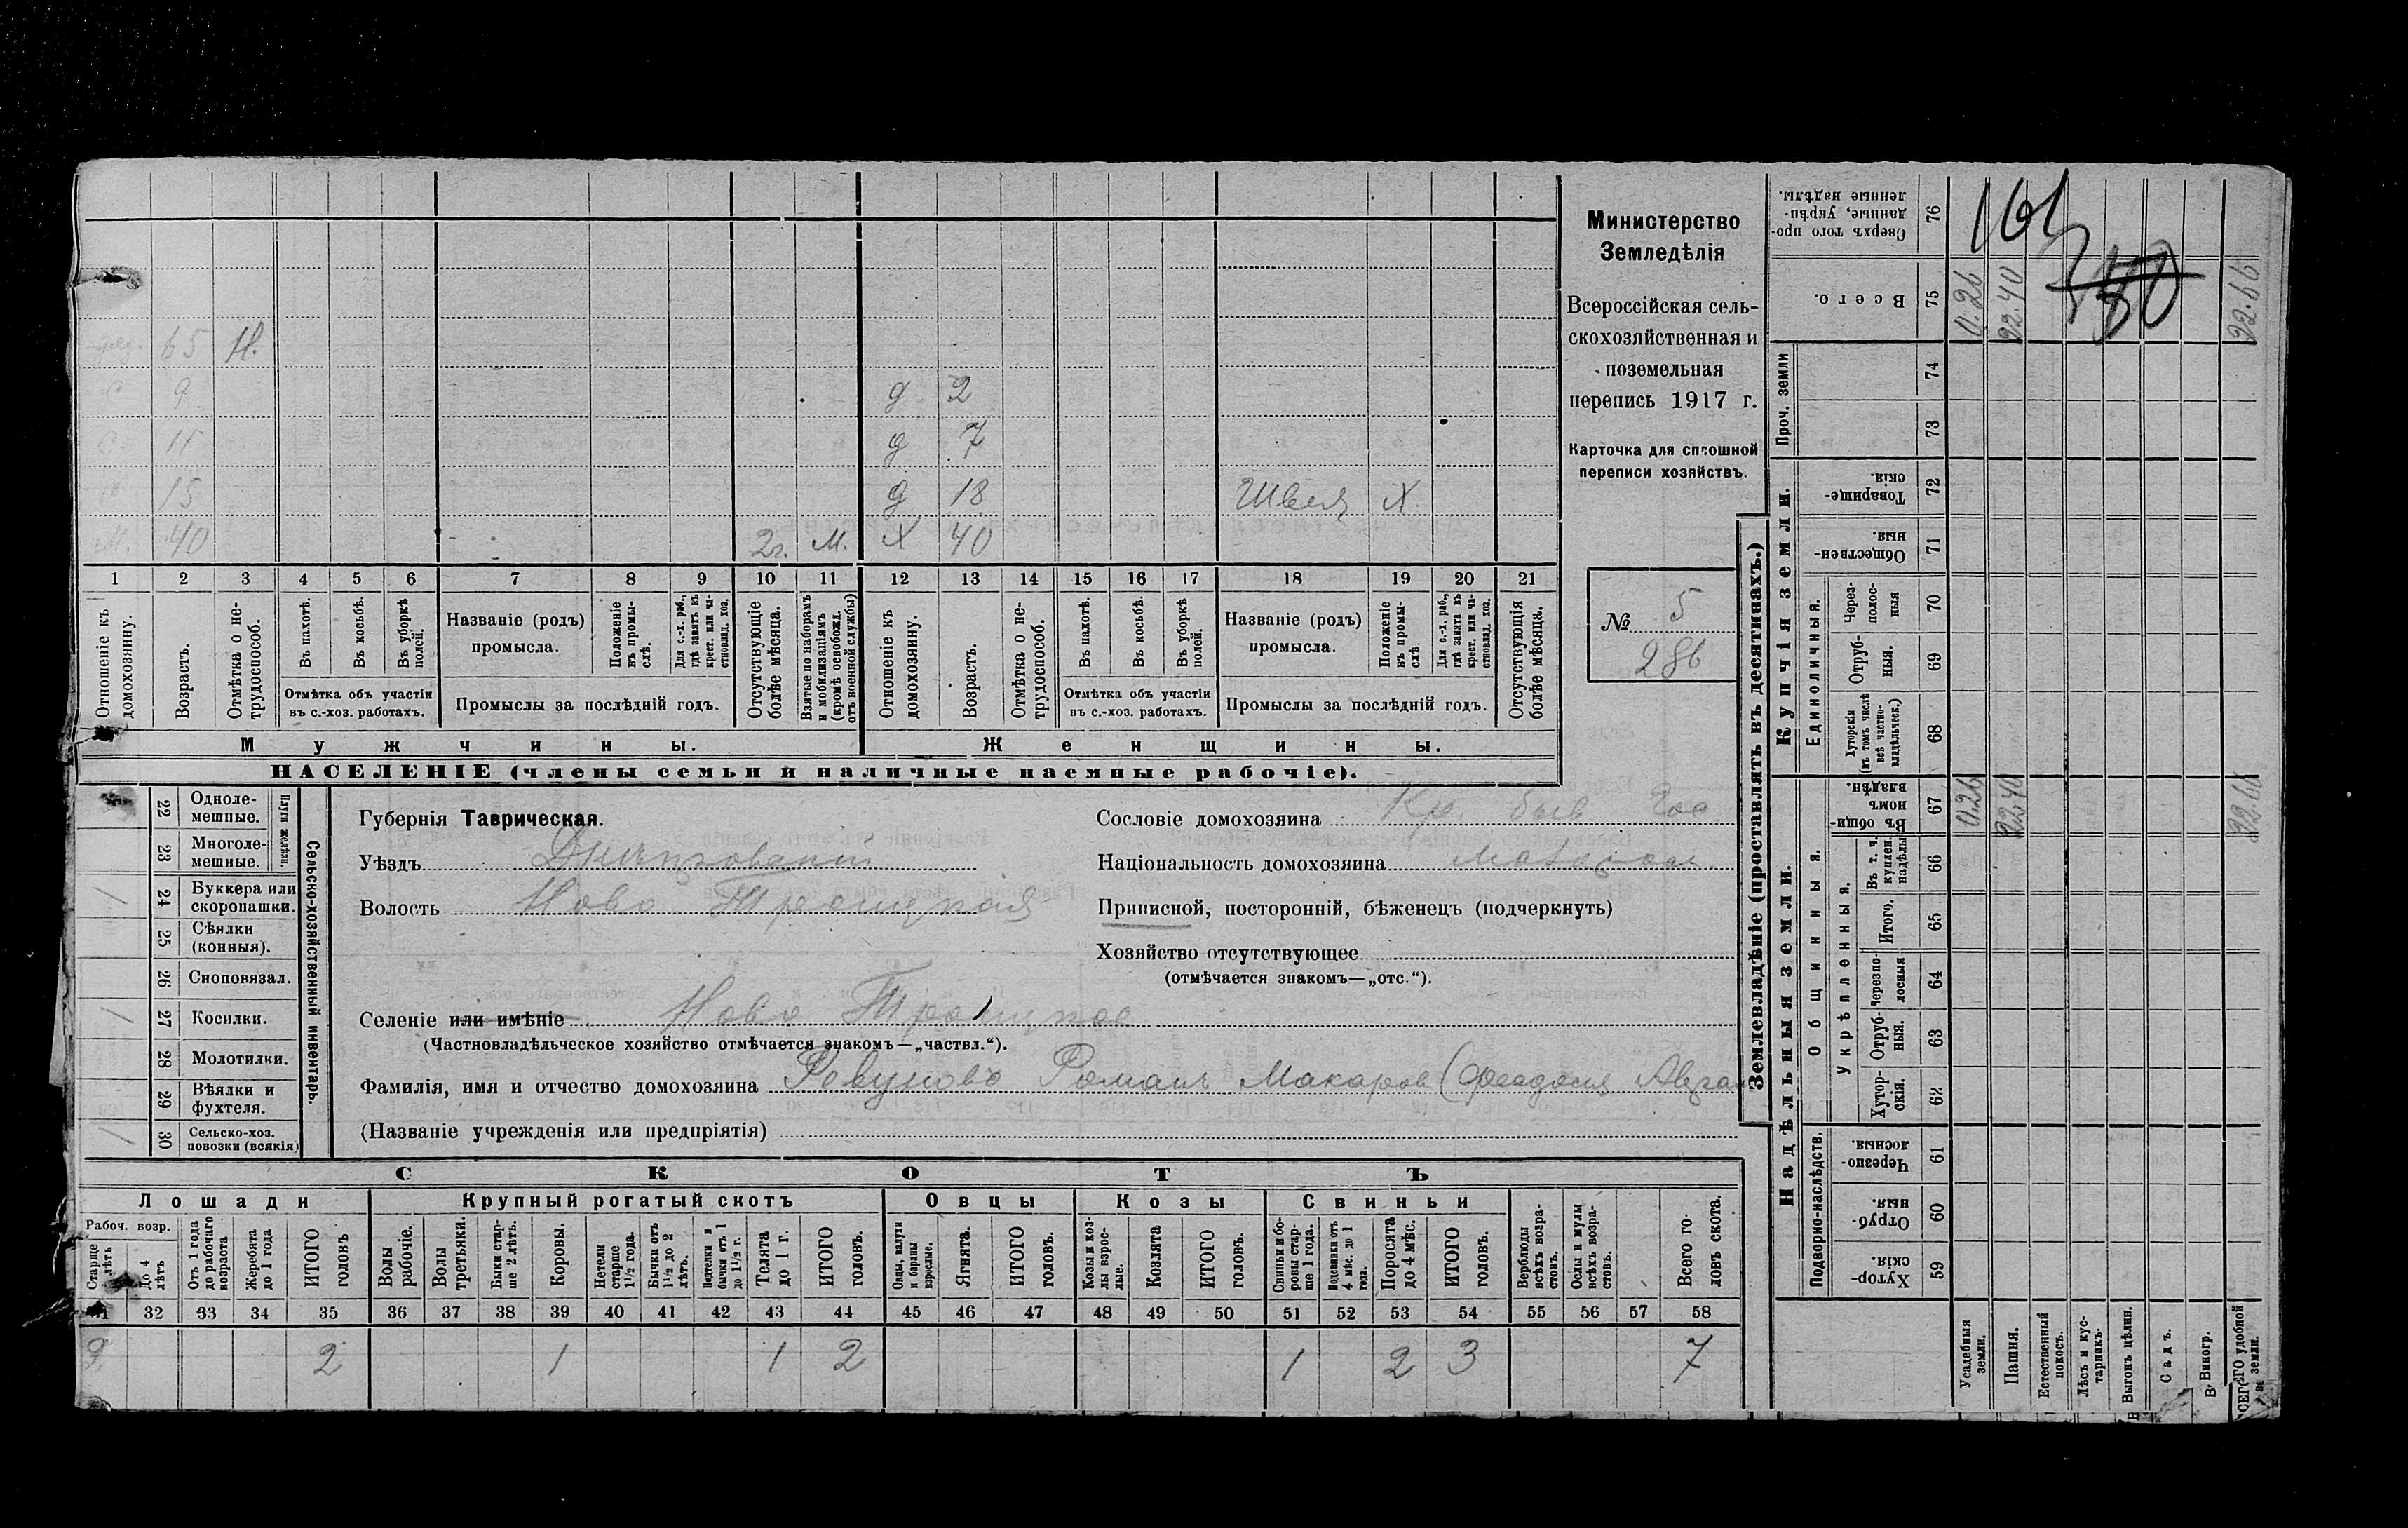 65 Н.
с 9 д 2
с 11 д 7
с 15 д 18 Швея Х
М. 40 2г. М. Х 40
1 2 3 4 5 6 7 8 9 10 11 12 13 14 15 16 17 18 19 20 21
Отношеніе къ домохозяину.
Возрастъ.
Отмѣтка о не-трудоспособ.
Въ пахотѣ.
Въ косьбѣ.
Въ уборкѣ полей.
Отмѣтка объ участіи
въ с.-хоз. работахъ.
Названіе (родъ)
промысла.
Положеніе въ промы-слѣ.
Для с.-х. раб., гдѣ занятъ въ крест. или ча-стновлад. хоз.
Промыслы за послѣдній годъ.
Отсутствующіе болѣе мѣсяца.
Взятые по наборамъ и мобилизаціямъ (кромѣ освобожд. отъ военной службы)
Отношеніе къ домохозяину.
Возрастъ.
Отмѣтка о не-трудоспособ.
Въ пахотѣ.
Въ косьбѣ.
Въ уборкѣ полей.
Отмѣтка объ участіи
въ с.-хоз. работахъ.
Названіе (родъ)
промысла.
Положеніе въ промы-слѣ.
Для с.-х. раб., гдѣ занята въ крест. или ча-стновлад. хоз.
Промыслы за послѣдній годъ.
Отсутствующія болѣе мѣсяца.
Мужчины. Женщины.
НАСЕЛЕНІЕ (члены семьи и наличные наемные рабочіе).
Министерство
Земледѣлія
Всероссійская сель-
скохозяйственная и
поземельная
перепись 1917 г.
Карточка для сплошной
переписи хозяйствъ.
№ 5
286
22 Одноле-мешные.
23 Многоле-мешные.
Плуги желѣзн.
24 Буккера или скоропашки. /
25 Сѣялки (конныя).
26 Сноповязал.
27 Косилки. /
28 Молотилки.
29 Вѣялки и фухтеля.
30 Сельско-хоз. повозки (всякія) /
Сельско-хозяйственный инвентарь.
Губернія Таврическая.
Уѣздъ Днѣпровскій
Волость Ново Троицкая
Сословіе домохозяина Кр. быв Гос
Національность домохозяина Малоросс.
Приписной, посторонній, бѣженецъ (подчеркнуть)
Хозяйство отсутствующее
(отмѣчается знакомъ—„отс.“).
Селеніе или имѣніе Ново Троицкое
(Частновладѣльческое хозяйство отмѣчается знакомъ—„частвл.“).
Фамилія, имя и отчество домохозяина Ревуновъ Романъ Макаров (Феодосія
(Названіе учрежденія или предпріятія)
СКОТЪ
Лошади Крупный рогатый скотъ Овцы Козы Свиньи
Рабоч. возр.
Старше 4 лѣтъ
До 4 лѣтъ
Отъ 1 года до рабочаго возраста
Жеребята до 1 года
ИТОГО головъ
Волы рабочіе.
Волы третьяки.
Быки стар-ше 2 лѣтъ.
Коровы.
Нетели старше 1½ года.
Бычки отъ 1½ до 2 лѣтъ.
Подтелки и бычки отъ 1 до 1½ г.
Телята до 1 г.
ИТОГО головъ.
Овцы, валухи и бараны взрослые.
Ягнята.
ИТОГО головъ.
Козы и коз-лы взрос-лые.
Козлята
ИТОГО головъ.
Свиньи и бо-ровы стар-ше 1 года.
Подсвинки отъ 4 мѣс. до 1 года.
Поросята до 4 мѣс.
ИТОГО головъ.
Верблюды всѣхъ возра-стовъ.
Ослы и мулы всѣхъ возра-стовъ.
Всего го-ловъ скота.
31 32 33 34 35 36 37 38 39 40 41 42 43 44 45 46 47 48 49 50 51 52 53 54 55 56 57 58
2 2 1 1 2 1 2 3 7
Землевладѣніе (проставлять въ десятинахъ.)
Надѣльныя земли. Купчія земли. Проч. земли
Подворно-наслѣдств. Общинныя. Единоличныя.
Укрѣпленныя.
Хутор-скія. 59
Отруб-ныя. 60
Черезпо-лосныя. 61
Хутор-скія. 62
Отруб-ныя. 63
Черезпо-лосныя 64
Итого. 65
Въ т. ч. куплен. надѣлы 66
Въ общи-номъ владѣн. 67 0.26 22.40 22.66
Хуторскія (въ томъ числѣ всѣ частно-владѣльческ.) 68
Отруб-ныя. 69
Через-полос-ныя 70
Обществен-ныя. 71
Товарище-скія. 72
73
74
Всего. 75 0.26 22.40 22.66
Сверхъ того про-данные, укрѣп-ленные надѣлы. 76
Усадебныя земли.
Пашня.
Естественный покосъ.
Лѣсъ и кус-тарникъ.
Выгонъ цѣлин.
Садъ.
Виногр.
удобной земли.